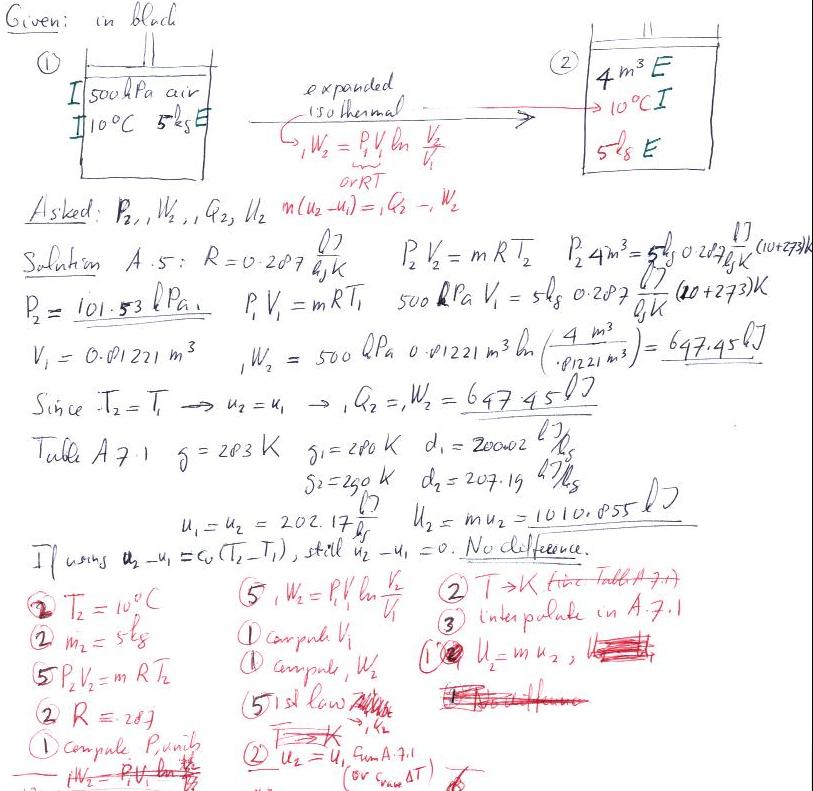 Given: in black
① ②
I 500 kPa air
I 10°C 5 kg E
expanded
isothermal
₁W₂ = P₁V₁ ln V₂/V₁
or RT
4 m³ E
10°C I
5 kg E
Asked: P₂, ₁W₂, ₁Q₂, U₂ m(u₂-u₁) = ₁Q₂ - ₁W₂
Solution A.5: R = 0.287 kJ/kg K P₂ V₂ = m R T₂ P₂ 4 m³ = 5 kg 0.287 kJ/kg K (10+273)K
P₂ = 101.53 kPa. P₁ V₁ = m R T₁ 500 kPa V₁ = 5 kg 0.287 kJ/kg K (10+273)K
V₁ = 0.81221 m³ ₁W₂ = 500 kPa 0.81221 m³ ln (4 m³/.81221 m³) = 647.45 kJ
Since T₂ = T₁ → u₂ = u₁ → ₁Q₂ = ₁W₂ = 647.45 kJ
Table A 7.1 g = 283 K g₁ = 280 K d₁ = 200.02 kJ/kg
g₂ = 290 K d₂ = 207.19 kJ/kg
u₁ = u₂ = 202.17 kJ/kg U₂ = m u₂ = 1010.855 kJ
If using u₂ - u₁ = cᵥ(T₂-T₁), still u₂ - u₁ = 0. No difference.
② T₂ = 10°C
② m₂ = 5 kg
⑤ P₂V₂ = m R T₂
② R = .287
① compute P, units
₁W₂ = P₁V₁ ln V₂/V₁
⑤ ₁W₂ = P₁V₁ ln V₂/V₁
① compute V₁
① compute ₁W₂
⑤ 1st law
→ ₁Q₂
T → K
② u₂ = u₁ from A.7.1
(or cᵥ ΔT)
② T → K (inc Table A 7.1)
③ interpolate in A.7.1
① U₂ = m u₂,
1 No difference